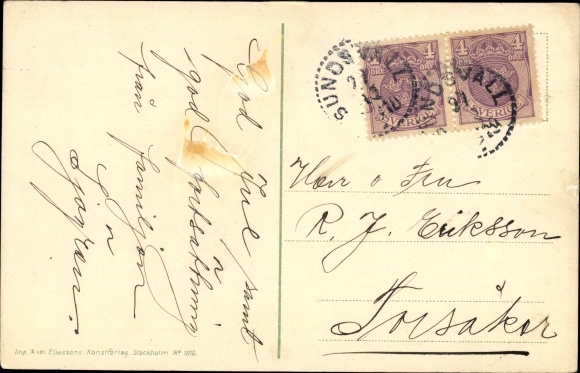 God Jul samt
god fortsättning
från familjen
Sjögren.
4 4
ÖRE ÖRE
SVERIGE SVERIGE
SUNDSVALL
SUNDSVALL
Herr o Fru
R. J. Eriksson
Torsåker
Imp. Axel Eliassons Konstförlag, Stockholm No 1610.